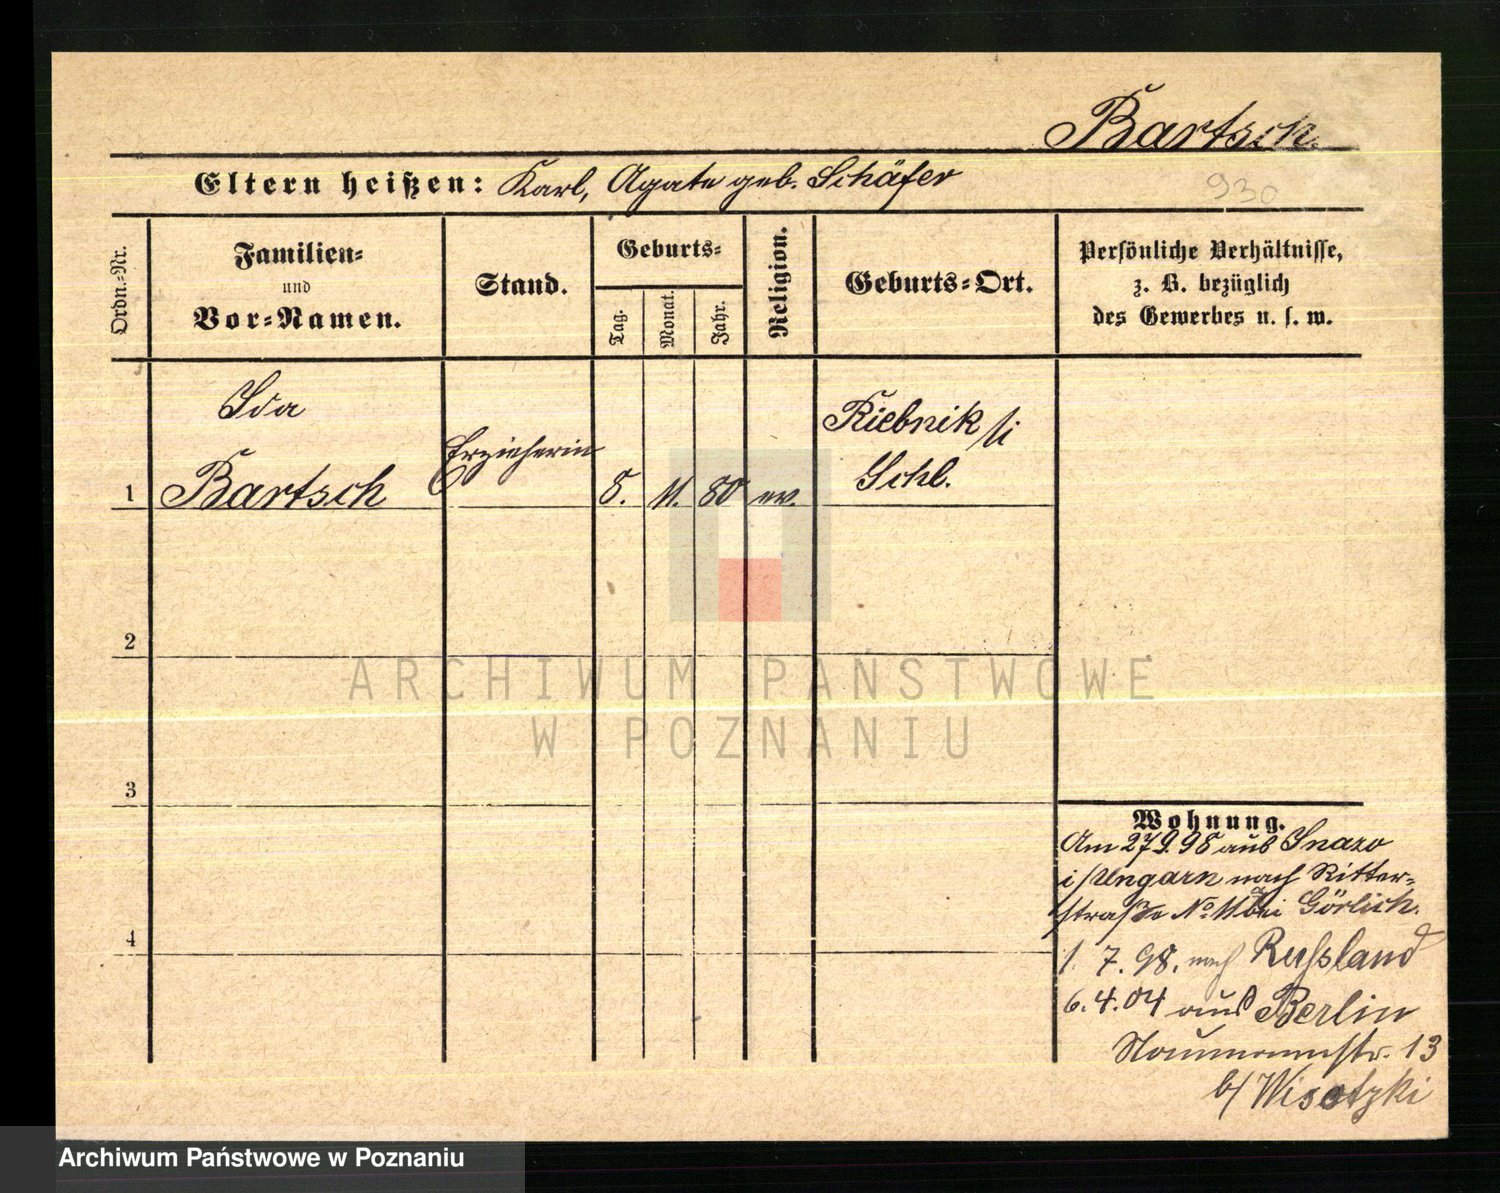 Bartsch.
Eltern heißen: Karl, Agate geb. Schäfer
930
Ordn.-Nr.
Familien-
und
Vor-Namen.
Stand.
Geburts-
Tag.
Monat.
Jahr.
Religion.
Geburts-Ort.
Persönliche Verhältnisse,
z. B. bezüglich
des Gewerbes u. s. w.
1
Ida
Bartsch
Erzieherin
8.
11.
80
ev.
Riebnik /i
Schl.
2
3
4
Wohnung.
Am 27.9.98 aus
i/Ungarn nach Ritter-
straße No. 11 bei Görlich.
1. 7. 98. nach Russland
6.4.04 aus Berlin
Naumannstr. 13
b/ Wisotzki
ARCHIWUM PAŃSTWOWE
W POZNANIU
Archiwum Państwowe w Poznaniu